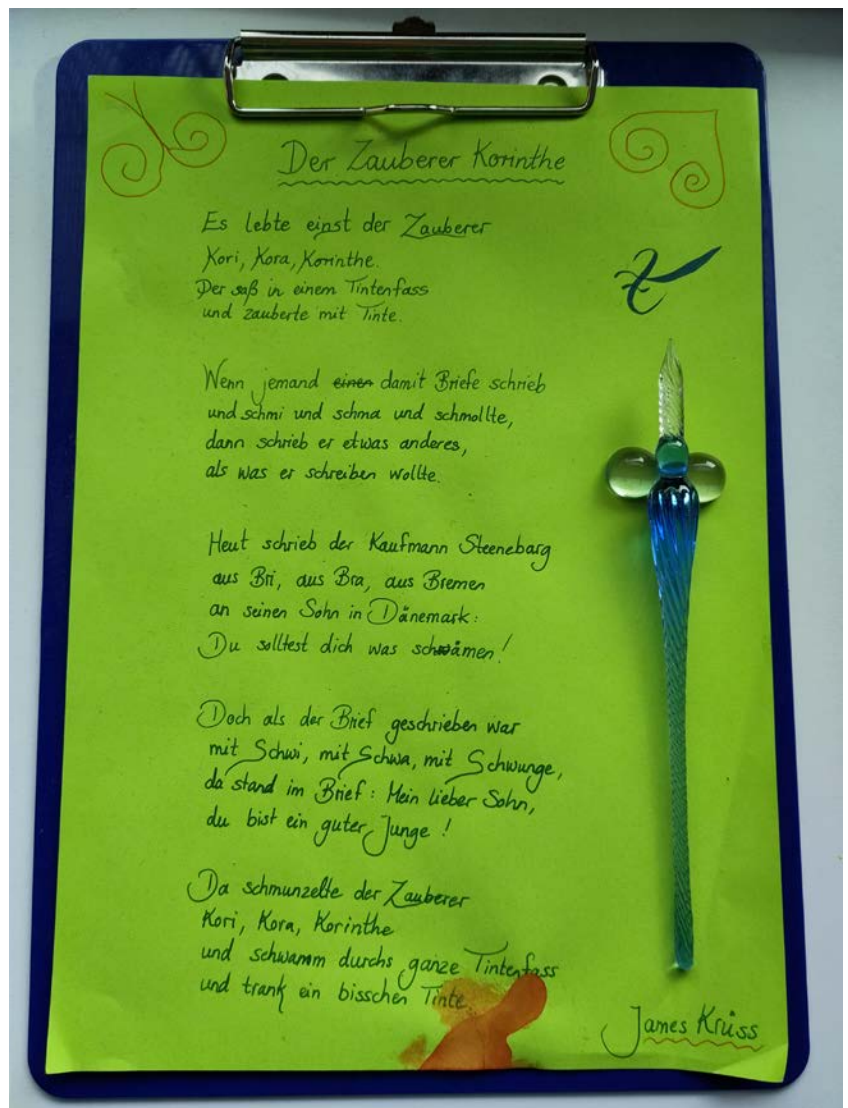 Der Zauberer Korinthe
Es lebte einst der Zauberer
Kori, Kora, Korinthe.
Der saß in einem Tintenfass
und zauberte mit Tinte.
Wenn jemand einen damit Briefe schrieb
und schmi und schma und schmollte,
dann schrieb er etwas anderes,
als was er schreiben wollte.
Heut schrieb der Kaufmann Steenebarg
aus Bri, aus Bra, aus Bremen
an seinen Sohn in Dänemark:
Du solltest dich was schämen!
Doch als der Brief geschrieben war
mit Schwi, mit Schwa, mit Schwunge,
da stand im Brief: Mein lieber Sohn,
du bist ein guter Junge!
Da schmunzelte der Zauberer
Kori, Kora, Korinthe
und schwamm durchs ganze Tintenfass
und trank ein bisschen Tinte.
James Krüss